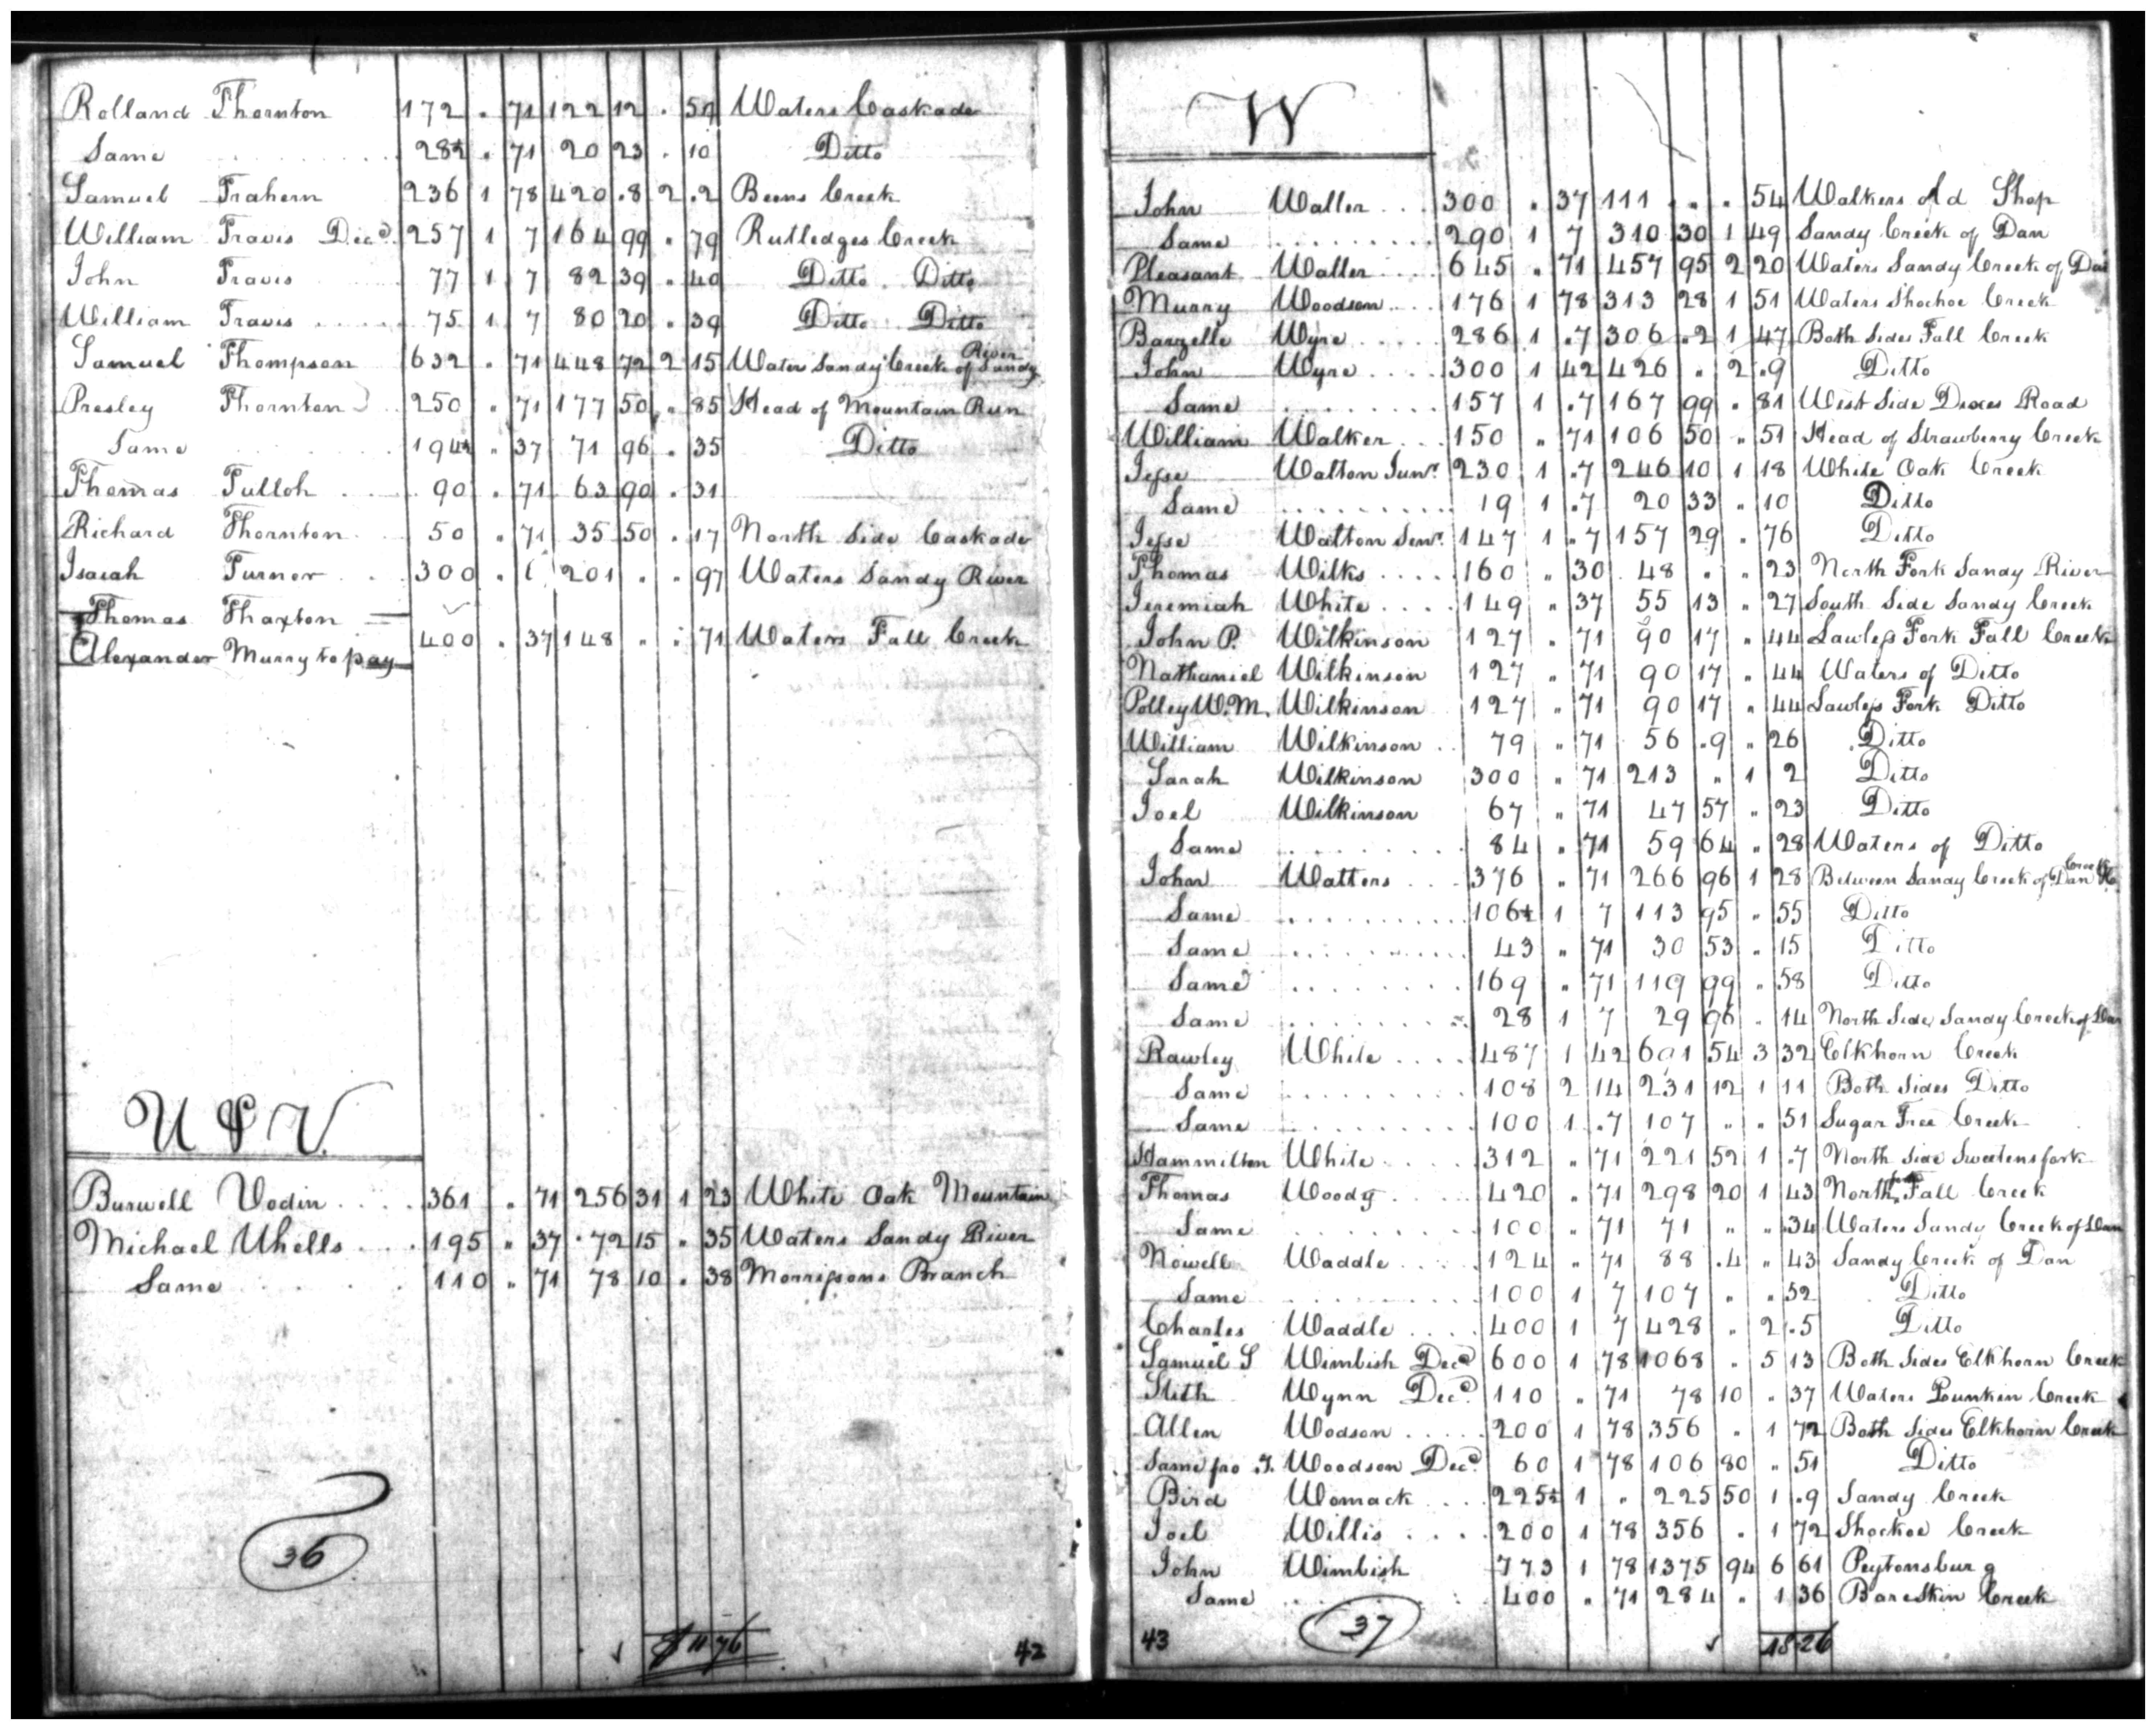 Rolland Thornton 172 . 71 122 12 . 59 Waters Caskade
Same 28½ . 71 20 23 . 10 Ditto
Samuel Trahern 236 1 78 420 .8 2 .2 Beens Creek
William Travis Decd. 257 1 7 164 99 " 79 Rutledges Creek
John Travis 77 1 7 82 39 " 40 Ditto Ditto
William Travis 75 1 7 80 20 . 39 Ditto Ditto
Samuel Thompson 632 . 71 448 72 2 15 Water Sandy Creek of Sandy River
Presley Thornton 250 " 71 177 50 " 85 Head of Mountain Run
Same 194½ " 37 71 96 . 35 Ditto
Thomas Tulloh 90 . 71 63 90 . 31
Richard Thornton 50 " 71 35 50 . 17 North Side Caskade
Isaiah Turner 300 . 201 " " 97 Waters Sandy River
Thomas Thaxton
Alexander Murry to pay 400 . 37 148 " " 71 Waters Fall Creek
U & V.
Burwell Vodin 361 " 71 256 31 1 23 White Oak Mountain
Michael Uhells 195 " 37 72 15 " 35 Waters Sandy River
Same 110 " 71 78 10 . 38 Morrisons Branch
36
$ 11 76
42
W
John Waller 300 . 37 111 . . . 54 Walkers Old Shop
Same 290 1 7 310 30 1 49 Sandy Creek of Dan
Pleasant Waller 645 " 71 457 95 2 20 Waters Sandy Creek of Dan
Murry Woodson 176 1 78 313 28 1 51 Waters Shockoe Creek
Barzelle Wyre 286 1 .7 306 .2 1 47 Both Sides Fall Creek
John Wyre 300 1 42 426 " 2 .9 Ditto
Same 157 1 .7 167 99 . 81 West Side Dixes Road
William Walker 150 " 71 106 50 " 51 Head of Strawberry Creek
Jesse Walton Junr. 230 1 .7 246 10 1 18 White Oak Creek
Same 19 1 .7 20 33 " 10 Ditto
Jesse Walton Senr. 147 1 .7 157 29 . 76 Ditto
Thomas Wilks 160 " 30 48 " " 23 North Fork Sandy River
Jeremiah White 149 " 37 55 13 " 27 South Side Sandy Creek
John P. Wilkinson 127 " 71 90 17 " 44 Lawless Fork Fall Creek
Nathaniel Wilkinson 127 " 71 90 17 " 44 Waters of Ditto
Polley W. M. Wilkinson 127 " 71 90 17 " 44 Lawless Fork Ditto
William Wilkinson 79 " 71 56 .9 " 26 Ditto
Sarah Wilkinson 300 " 71 213 " 1 2 Ditto
Joel Wilkinson 67 " 71 47 57 " 23 Ditto
Same 84 " 71 59 64 " 28 Waters of Ditto
John Watters 376 " 71 266 96 1 28 Between Sandy Creek of Dan
Same 106½ 1 7 113 95 " 55 Ditto
Same 43 " 71 30 53 " 15 Ditto
Same 169 " 71 119 99 " 58 Ditto
Same 28 1 7 29 96 . 14 North Side Sandy Creek of Dan
Rawley White 487 1 42 691 54 3 32 Elkhorn Creek
Same 108 2 14 231 12 1 11 Both Sides Ditto
Same 100 1 .7 107 " " 51 Sugar Tree Creek
Hammilton White 312 " 71 221 52 1 .7 North Side Sweetens fork
Thomas Woody 420 " 71 298 20 1 43 North fork Fall Creek
Same 100 " 71 71 " " 34 Waters Sandy Creek of Dan
Nowell Waddle 124 " 71 88 .4 " 43 Sandy Creek of Dan
Same 100 1 7 107 " " 52 Ditto
Charles Waddle 400 1 7 428 " 2 .5 Ditto
Samuel S Wimbish Decd 600 1 78 1068 " 5 13 Both Sides Elkhorn Creek
Stith Wynn Decd. 110 " 71 78 10 " 37 Waters Punkin Creek
Allen Wodson 200 1 78 356 " 1 72 Both Sides Elkhorn Creek
Same pro J. Woodson Decd. 60 1 78 106 80 " 51 Ditto
Bird Womack 225½ 1 " 225 50 1 .9 Sandy Creek
Joel Willis 200 1 78 356 " 1 72 Shockoe Creek
John Wimbish 773 1 78 1375 94 6 61 Peytonsburg
Same 400 " 71 284 " 1 36 Bareskin Creek
43
37
18-26